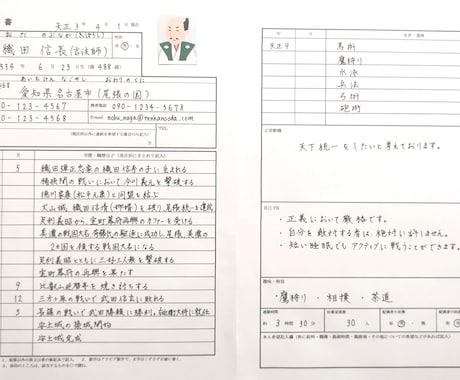 書
天正3年4月1日現在
おだ のぶなが(きっぽうし)
織田 信長(吉法師)
1534年 6月 23日生(満488歳)
男
あいちけんなごやし おわりのくに
愛知県名古屋市(尾張の国)
090-123-4567
携帯電話 090-1234-5678
090-123-4568
E-mail nobu_naga@tenkanooda.com
(現住所以外に連絡を希望する場合のみ記入)
月 学歴・職歴など(項目別にまとめて記入)
5 織田弾正忠家の織田信秀の子に生まれる
桶狭間の戦いにおいて今川義元を撃破する
徳川家康(松平元康)と同盟を結ぶ
犬山城 織田信清(岬崎)を破り尾張統一を達成
足利義昭から、室町幕府再興のオファーを受ける
美濃の戦国大名・斉藤氏の駆逐に成功し、尾張・美濃の
2ヵ国を領する戦国大名になる
足利義昭とともに三好三人衆を撃破する
室町幕府の再興を果たす
9 比叡山延暦寺を焼き討ちする
12 三方ヶ原の戦いで武田信玄に敗れる
5 長篠の戦いで武田勝頼に勝利し、右近衛大将に就任
安土城の築城開始
安土城完成
年 月 免許・資格
天正9 馬術
鷹狩り
水泳
兵法
弓術
砲術
志望動機
天下統一をしたいと考えております。
自己PR
・正義において厳格です。
・自分を敵対する者は、絶対に許しません。
・短い睡眠でもアクティブに戦うことができます。
趣味・特技
・鷹狩り・相撲・茶道
通勤時間
扶養家族数
配偶者
約3時間30分
30人
本人希望記入欄